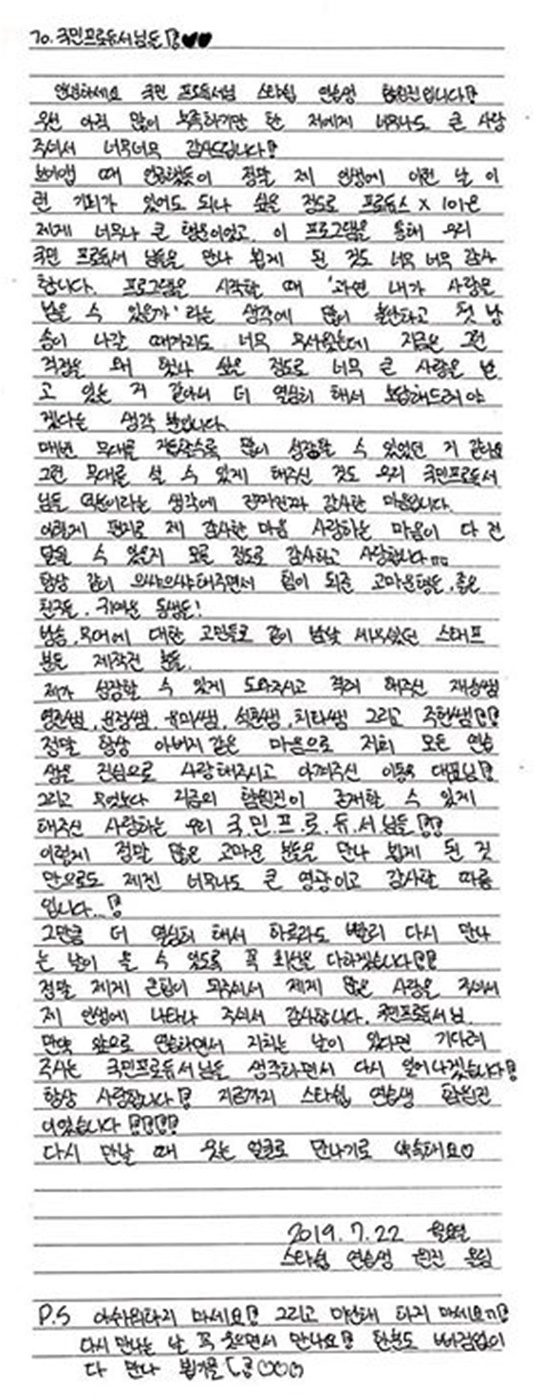 To. 국민프로듀서님들!! ♥♥
안녕하세요 국민 프로듀서님 스타쉽 연습생 함원진입니다!!
우선 아직 많이 부족하기만 한 저에게 너무나도 큰 사랑
주셔서 너무너무 감사드립니다!!
브이앱 때 언급했듯이 정말 제 인생에 이런 날 이
런 기회가 있어도 되나 싶은 정도로 프로듀스 X 101은
제게 너무나 큰 행운이었고, 이 프로그램을 통해 우리
국민 프로듀서 님들을 만나 뵙게 된 것도 너무 너무 감사
합니다. 프로그램을 시작할 때 '과연 내가 사랑을
받을 수 있을까' 라는 생각에 많이 불안하고 첫 방
송이 나갈 때까지도 너무 무서웠는데 지금은 그런
걱정을 왜 했나 싶은 정도로 너무 큰 사랑을 받
고 있는 거 같아서 더 열심히 해서 보답해드려야
겠다는 생각 뿐입니다.
매번 무대를 거듭할수록 많이 성장할 수 있었던 거 같아요
그런 무대를 설 수 있게 해주신 것도 우리 국민프로듀서
님들 덕분이라는 생각에 감사한 마음입니다.
이렇게 편지로 제 감사한 마음 사랑하는 마음이 다 전
달될 수 있을지 모를 정도로 감사하고 사랑합니다ㅠㅠ
항상 같이 으쌰으쌰해주면서 힘이 되준 고마운형들, 좋은
친구들, 귀여운 동생들!
방송, 무대에 대한 고민들로 같이 밤낮 새주셨던 스태프
분들 제작진 분들.
제가 성장할 수 있게 도와주시고 격려 해주신 재승쌤
영준쌤, 윤정쌤, 유미쌤, 석훈쌤, 치타쌤 그리고 주현쌤!!
정말 항상 아버지 같은 마음으로 저희 모든 연습
생을 진심으로 사랑해주시고 아껴주신 이동욱 대표님!!
그리고 무엇보다 지금의 함원진이 존재할 수 있게
해주신 사랑하는 우리 국.민.프.로.듀.서님들!!
이렇게 정말 많은 고마운 분들을 만나 뵙게 된 것
만으로도 제겐 너무나도 큰 영광이고 감사할 따름
입니다...!!
그만큼 더 열심히 해서 하루라도 빨리 다시 만나
는 날이 올 수 있도록 꼭 최선을 다하겠습니다!!
정말 제게 큰힘이 되주셔서 제게 많은 사랑을 주셔서
제 인생에 나타나 주셔서 감사합니다. 국민프로듀서님
만약 앞으로 연습하면서 지치는 날이 있다면 기다려
주시는 국민프로듀서님을 생각하면서 다시 일어나겠습니다!
항상 사랑합니다!! 지금까지 스타쉽 연습생 함원진
이었습니다!!!!
다시 만날 때 웃는 얼굴로 만나기로 약속해요♡
2019. 7. 22 월요일
스타쉽 연습생 원진 올림
P.S 아쉬워하지 마세요!! 그리고 미안해 하지 마세요ㅠ!!
다시 만나는 날 꼭 웃으면서 만나요!! 한분도 빠짐없이
다 만나 뵙기를 ♡♡♡